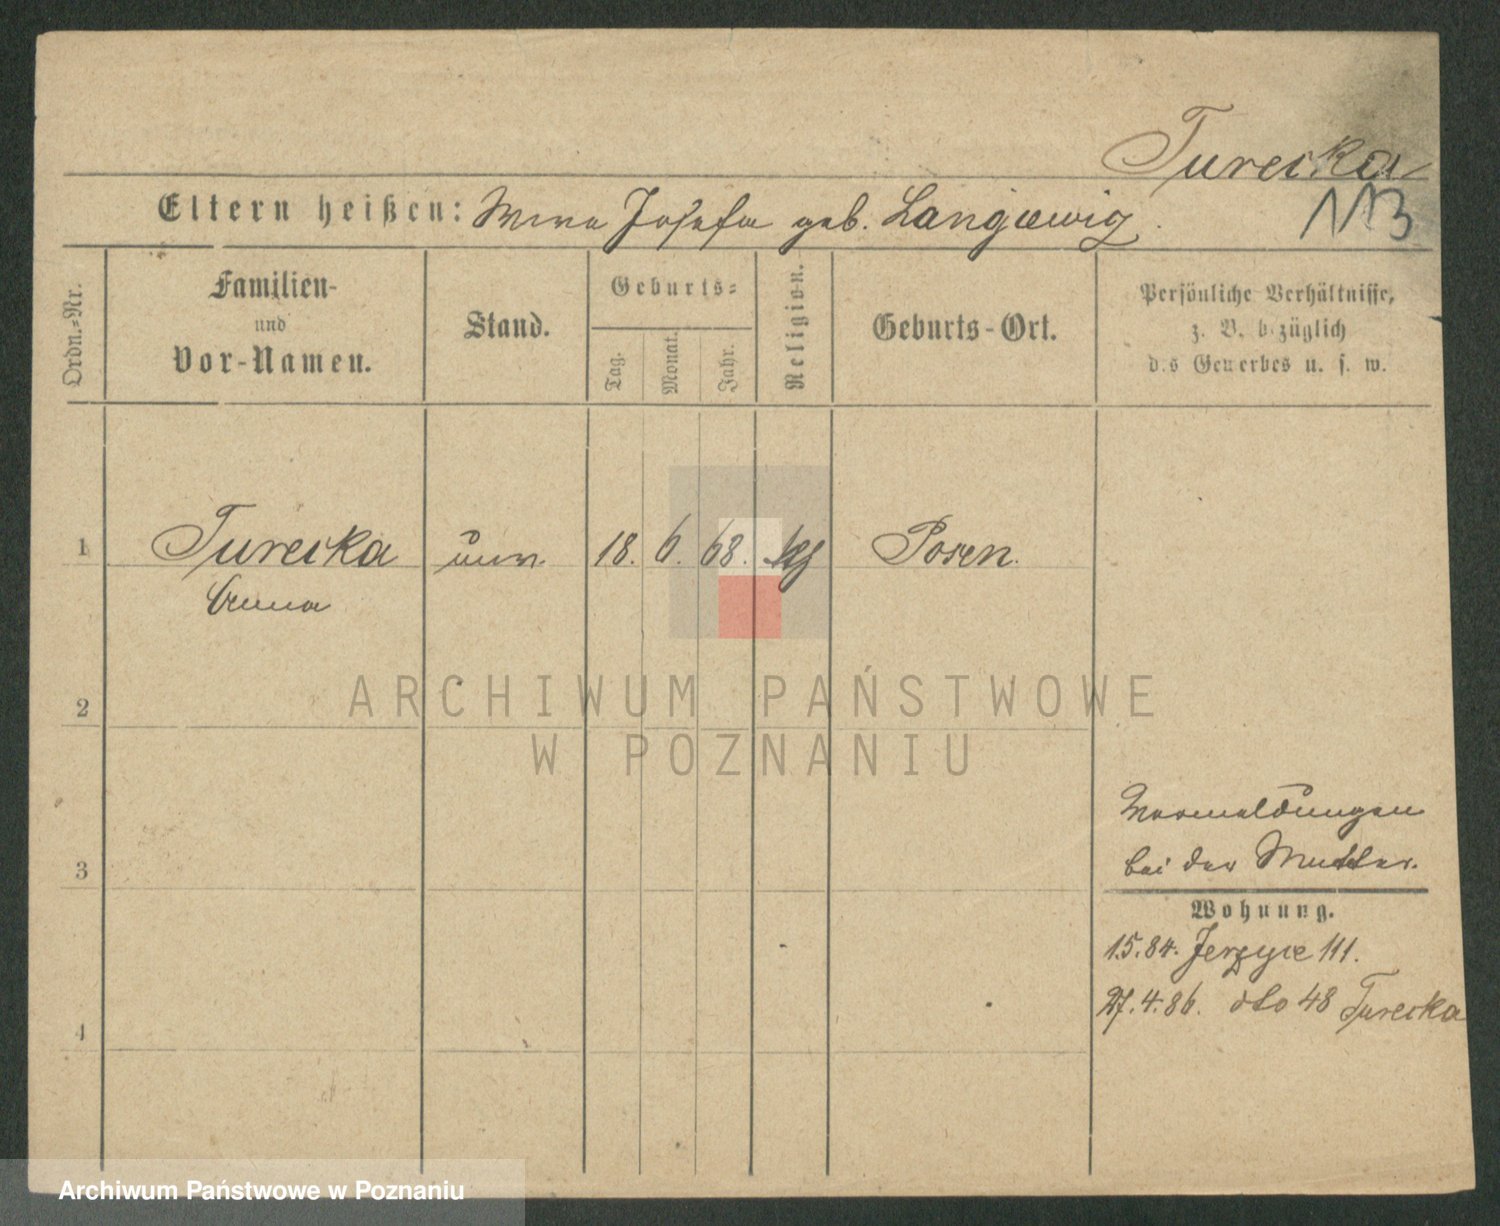 Turecka
113
Eltern heißen: Wwe Josefa geb. Langiewicz.
Ordn.-Nr.
Familien-
und
Vor-Namen.
Stand.
Geburts-
Tag.
Monat.
Jahr.
Religion.
Geburts-Ort.
Persönliche Verhältnisse,
z. B. bezüglich
des Gewerbes u. s. w.
1 Turecka unv. 18. 6. 68. Posen.
Anna
ARCHIWUM PAŃSTWOWE
W POZNANIU
2
3
4
bei der Mutter.
Wohnung.
1.5.84. Jerzyce 111.
27.4.86. dto 48 Turecka
Archiwum Państwowe w Poznaniu